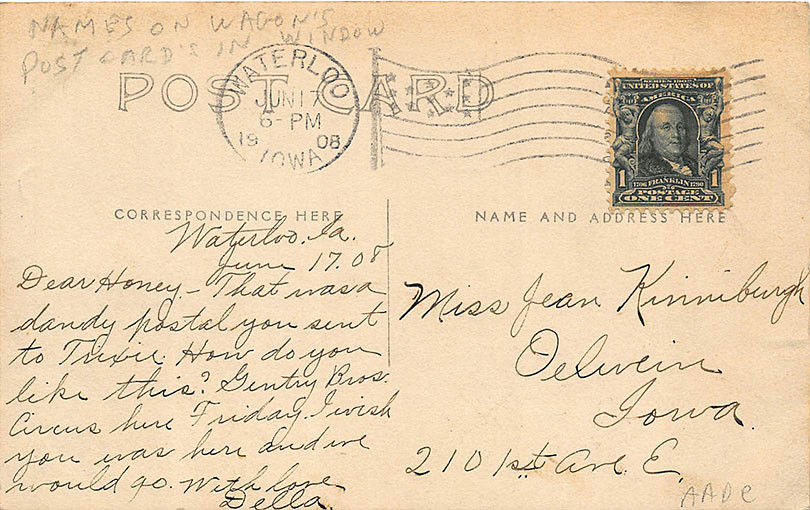 NAMES ON WAGON'S
POST CARD'S IN WINDOW
POST CARD
WATERLOO
JUN 17
6-PM
19 08
IOWA
SERIES 1902
UNITED STATES OF
AMERICA
1 1706 FRANKLIN 1790 1
POSTAGE
ONE CENT
CORRESPONDENCE HERE
NAME AND ADDRESS HERE
Waterloo. Ia.
June 17. 08
Dear Honey - That was a
dandy postal you sent
to Trixie. How do you
like this? Gentry Bros.
Circus here Friday. I wish
you was here and we
would go. With love
Della.
Miss Jean Kinniburgh
Oelwein
Iowa.
210 1st Ave. E.
AADC